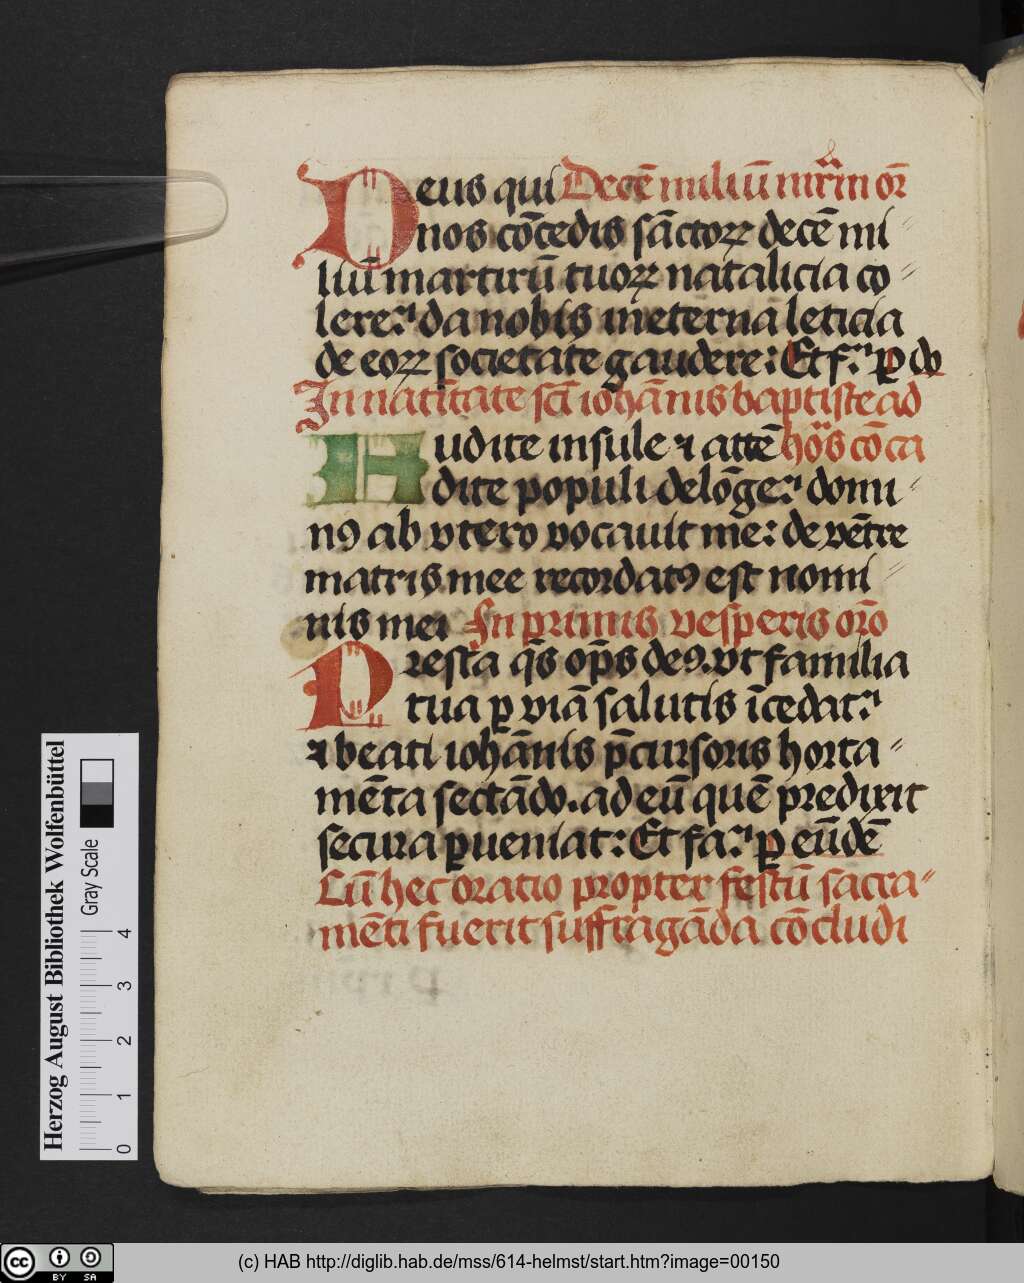 Deus qui Decē miliū mr̄m or̄
nos cōcedis sāctoꝝ decē mi
liū martirū tuoꝝ natalicia co
lere: da nobis in eterna leticia
de eoꝝ societate gaudere: Et f. ꝑ do
In natītate scī iohānis baptiste ad
Audite insule ⁊ attē hōs cō ca
dite populi de lōge: domi
nꝰ ab vtero vocauit me: de vētre
matris mee recordatꝰ est nomi
nis mei In primis vesperis orō
Presta qs̄ ops̄ deꝰ. vt familia
tua ꝑ viā salutis īcedat:
⁊ beati iohānis p̄cursoris horta
mēta sectādo. ad eū quē predixit
secura ꝑueniat: Et fa: ꝑ eūdē
Cū hec oratio propter festū sacra
mēti fuerit suffragāda cōcludi
Herzog August Bibliothek Wolfenbüttel
Gray Scale
0 1 2 3 4
cc BY SA
(c) HAB http://diglib.hab.de/mss/614-helmst/start.htm?image=00150